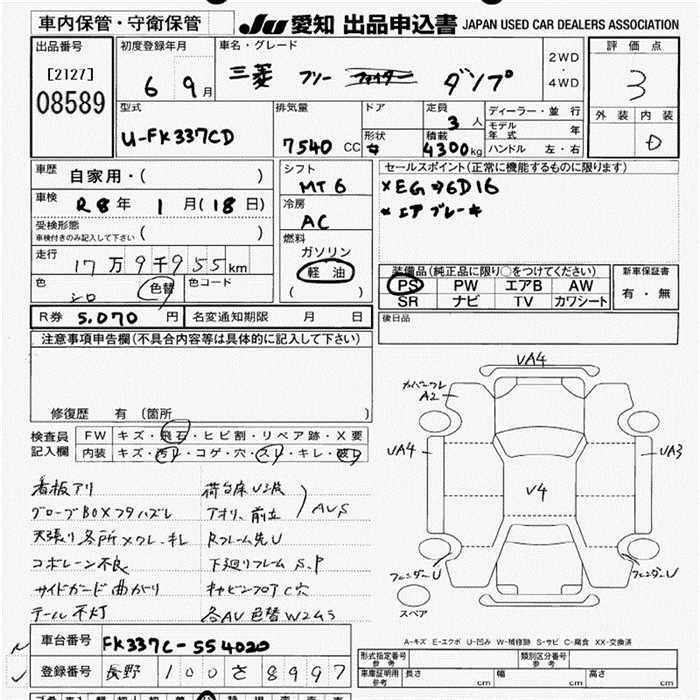 車内保管・守衛保管 JU 愛知 出品申込書 JAPAN USED CAR DEALERS ASSOCIATION
出品番号 初度登録年月 車名・グレード 2WD・4WD 評価点
[2127] 08589 6 9月 三菱 フソー ファイター ダンプ 3
型式 排気量 ドア 定員 ディーラー・並 行 外装 内装
U-FK337CD 7540 CC 3人 モデル年式 年 D
形状 積載 4300kg ハンドル 左・右
車歴 自家用・( ) シフト MT6 セールスポイント(正常に機能するものに限ります)
車検 R8年 1月(18日) 冷房 AC ×EG⇒6D16
受検形態 車検付きのみ記入して下さい ( ) ×エアブレーキ
走行 17万9千955km 燃料 ガソリン 軽油 ( )
色 シロ 色替 色コード 装備品(純正品に限り○をつけてください) 新車保証書
PS PW エアB AW 有・無
SR ナビ TV カワシート
R券 5,070円 名変通知期限 月 日 後日品
注意事項申告欄(不具合内容等は具体的に記入して下さい)
修復歴 有 (箇所 )
検査員記入欄 FW キズ・飛石・ヒビ割・リペア跡・X要
内装 キズ・汚れ・コゲ・穴・スレ・キレ・破レ
VA4
カバーワレ
A2
VA4 V4 VA3
フェンダーU フェンダーU
スペア
看板アリ 荷台床U2波
グローブBOXフタハズレ アオリ、前立 AVS
天張り各所×ワレ・キレ Rフレーム先U
コボレーン不良 下廻りフレームS、P
サイドガード曲がり キャビンフロアC穴
テール不灯 各AV色替W2ムラ
A-キズ E-エクボ U-凹み W-補修跡 S-サビ C-腐食 XX-交換済
車台番号 FK337C-554020
登録番号 長野 100 さ 8997
形式指定番号 参考 類別区分番号 参考
車庫証明用 参考 長さ cm 幅 cm 高さ cm